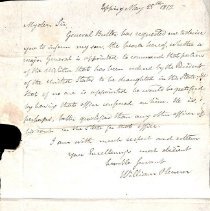 Epping May 28th 1812
My dear Sir,
General Butler has requested me to advise
you to inform my son, the bearer hereof, whether a
major General is appointed to command that portion
of the Militia that has been ordered by the President
of the United States to be draughted in the State &
that if no one is appointed he would be gratified
by having that office conferred on him. He is,
perhaps, better qualified than any other officer of
his rank in the State for that office.
I am with much respect and esteem
your Excellency's most obedient
humble servant
William Plumer